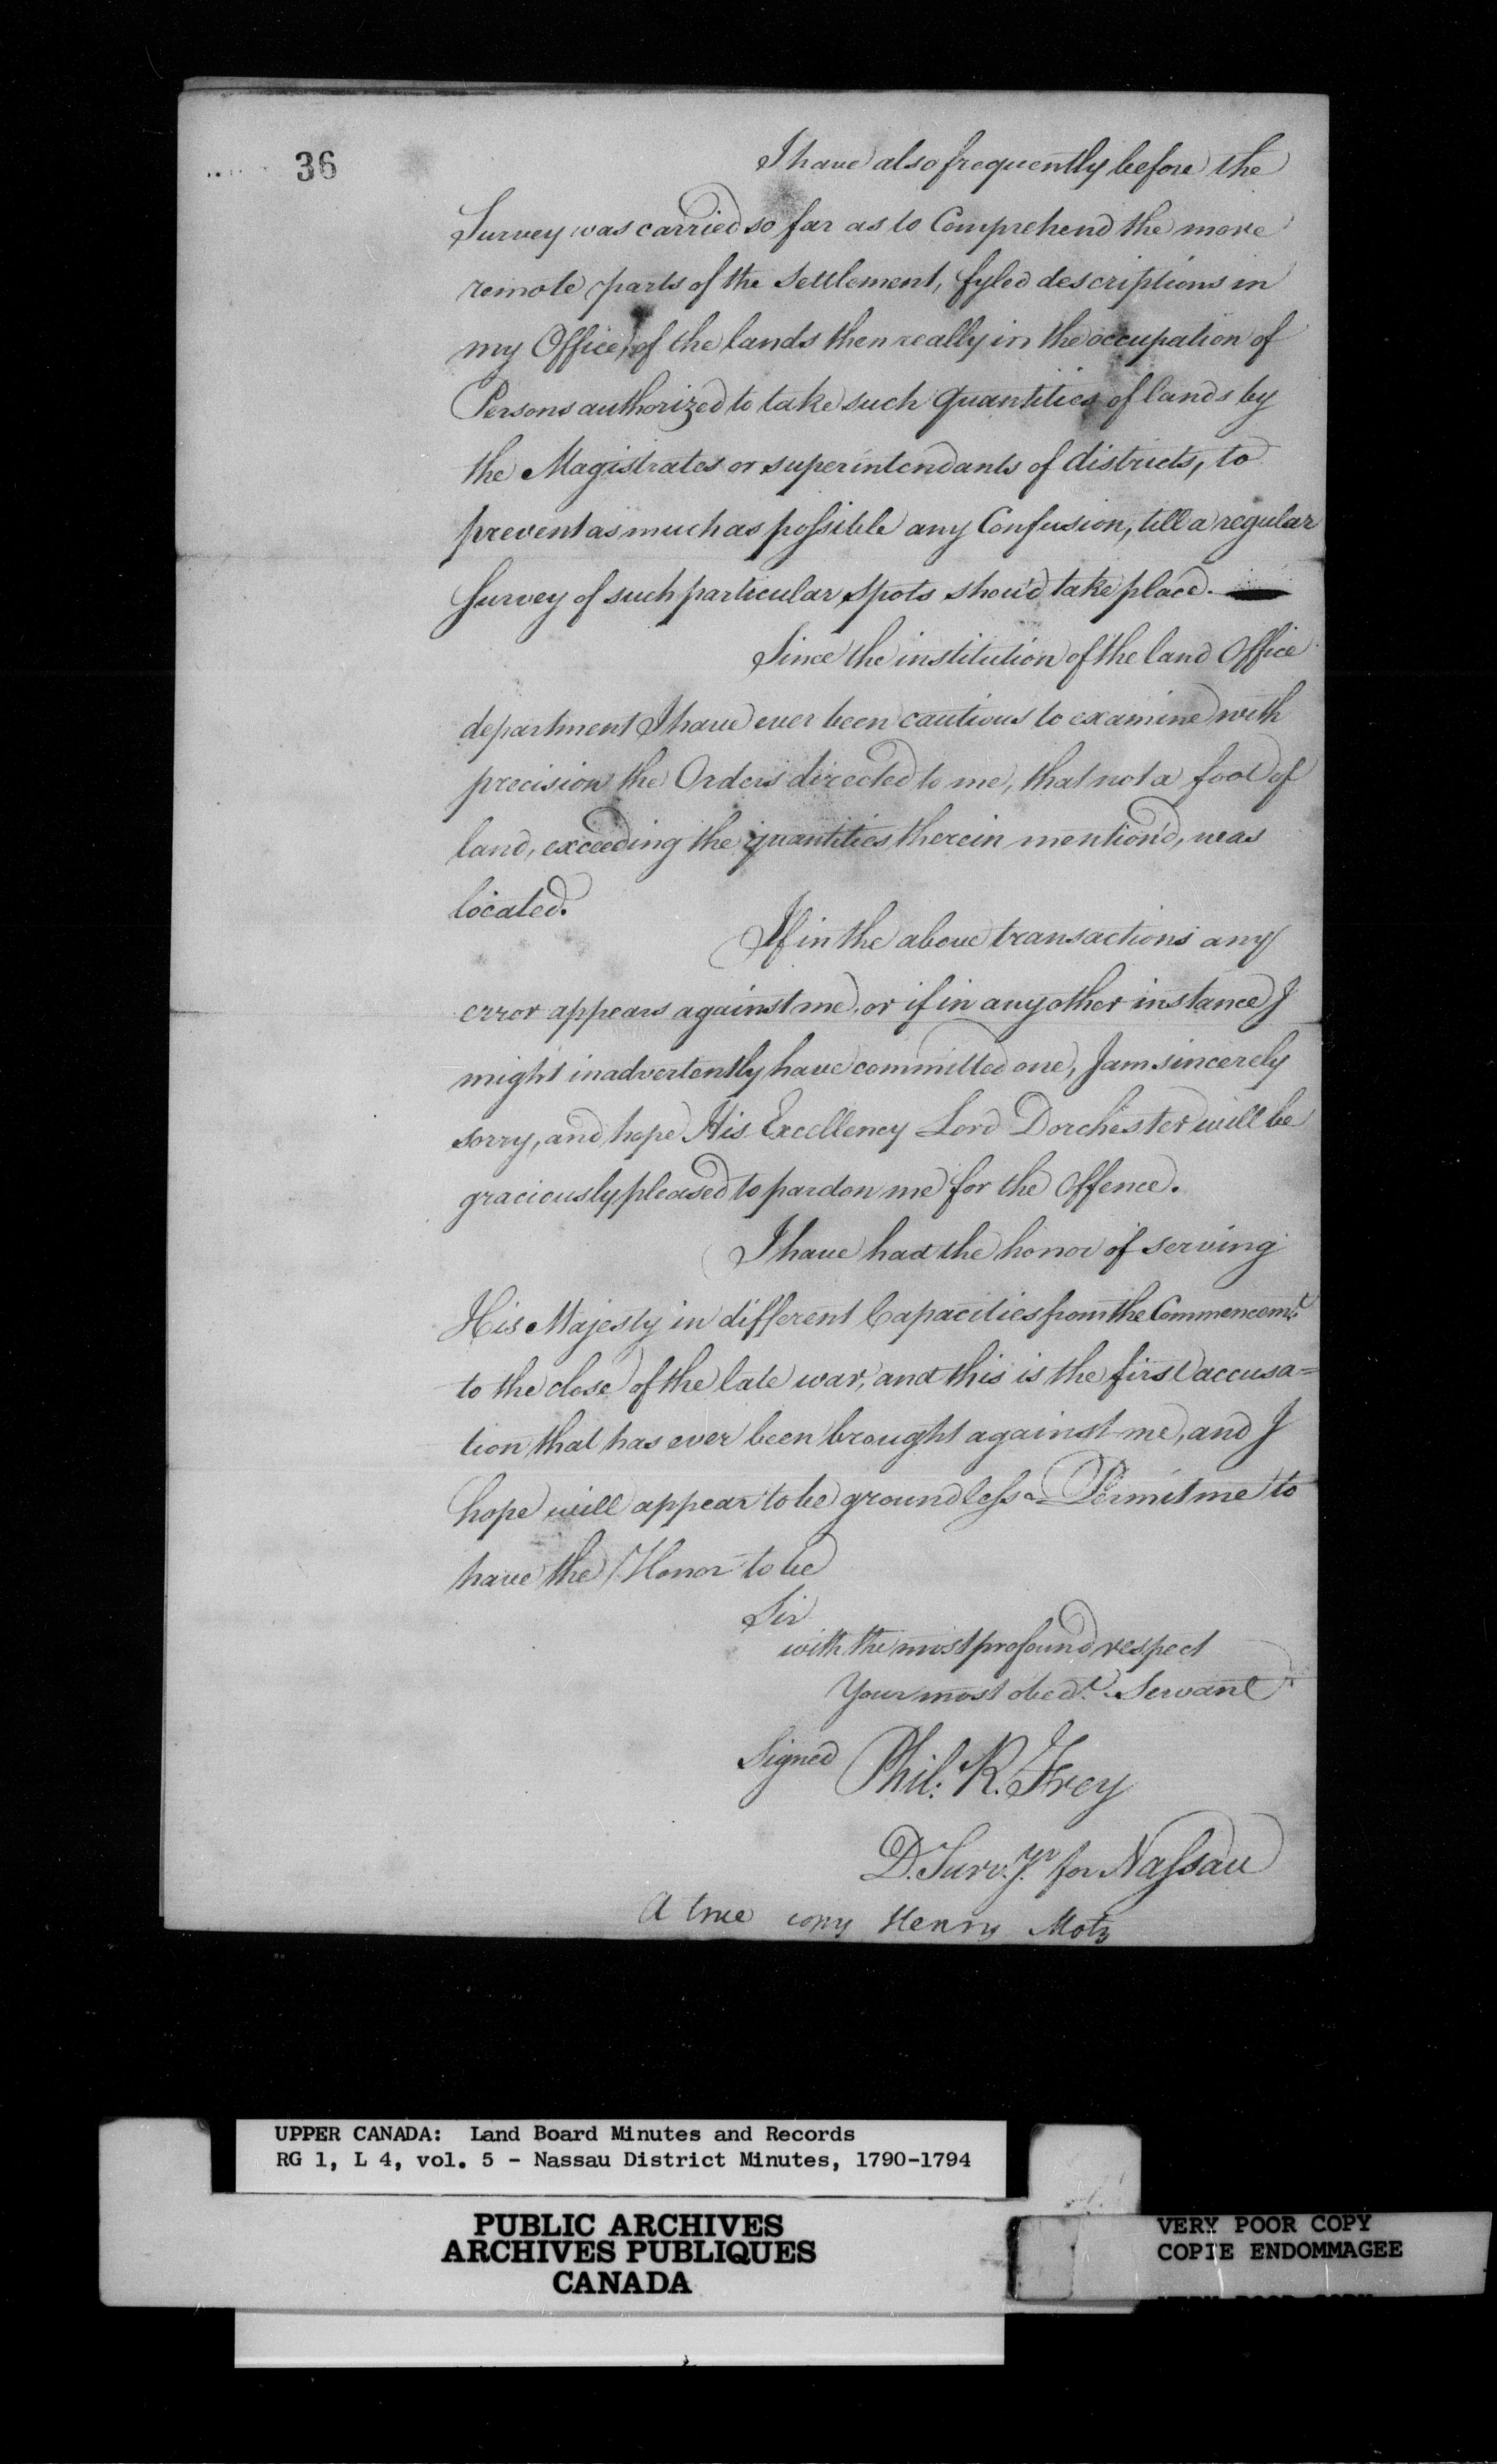 36
I have also frequently before the
Survey was carried so far as to Comprehend the more
remote parts of the Settlement, fyled descriptions in
my Office, of the lands then really in the occupation of
Persons authorized to take such Quantities of lands by
the Magistrates or superintendants of districts, to
prevent as much as possible any Confusion, till a regular
Survey of such particular spots shou'd take place.
Since the institution of the land Office
department I have ever been cautious to examine with
precision the Orders directed to me, that not a foot of
land, exceeding the quantities therein mention'd, was
located.
If in the above transactions any
error appears against me, or if in any other instance I
might inadvertently have committed one, I am sincerely
sorry, and hope His Excellency Lord Dorchester will be
graciously pleased to pardon me for the Offence.
I have had the honor of serving
His Majesty in different Capacities from the Commencemt
to the close of the late war, and this is the first accusa=
tion that has ever been brought against me, and I
hope will appear to be groundless = Permit me to
have the Honor to be
Sir
with the most profound respect
Your most obedt. Servant
Signed Phil: R. Frey
D. Surv.yr. for Nassau
A true copy Henry Motz
UPPER CANADA: Land Board Minutes and Records
RG 1, L 4, vol. 5 - Nassau District Minutes, 1790-1794
PUBLIC ARCHIVES
ARCHIVES PUBLIQUES
CANADA
VERY POOR COPY
COPIE ENDOMMAGEE